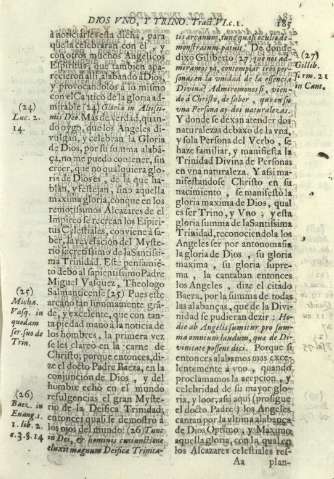 DIOS VNO, Y TRINO. Trat. VI. c. 1.
185
a
para
que la celebraran con él, y
con otros muchos Angelicos
Espiritus, que tambien apa-
recieron allí alabando à Dios,
y provocandolos à lo mismo
con el Cantico de la gloria ad-
mirable (24) Gloria in Altis-
simis Deo. Mas de verdad, quan-
do oygo, que los Angeles di-
vulgan, y celebran la Gloria
de Dios, por su summa alaba-
ça, no me puedo contener, sin
creer, que no qualquiera glo-
ria de Dios es, de la que ha-
blan, y festejan, sino aquella
maxima gloria, con que en los
remotissimos Alcazares de el
Impireo se recrean los Espiri-
tus Celestiales, conviene à sa-
ber, la revelacion del Myste-
rio secretissimo de la Santissi-
ma Trinidad. Este pensamie-
to debo al sapientissimo Padre
Miguel Vasquez, Theologo
Salmanticense (25) Pues este
arcano tan summamente gra-
de, y excelente, que con tan-
ta piedad mano à la noticia de
los hombres, la primera vez
se les claró en la carne de
Christo; porque entonces, di-
ze el docto Padre Baeza, en la
conjuncion de Dios, y del
hombre echó en el mundo
resulgencias el gran Myste-
rio de la Deifica Trinidad,
entonces qual se demostró à
los ojos del mundo: (26) Tunc
in Dei, & hominis coniunctione
eluxit magnum Deifica Trinita-
(24)
Luc. 2.
14.
(25)
Micha.
Vasq. in
quodam
ser. so de
Trin.
(26)
Baez. in
Euang. t.
1. lib. 2.
c. 3. §. 14
tis arcanum, tunc
monstratum patuit. De donde
dixo Gilberto: 27 que nos ad-
miramos ya, contemplar tres Per-
sonas en la vnidad de la essencia
Divina? Admiremonos si, vien-
do à Christo, de saber, que en su
vna Persona ay dos naturalezas.
Y donde se dexan atender dos
naturalezas debaxo de la vna,
y sola Persona del Verbo, se
haze familiar, y manifiesta la
Trinidad Divina de Personas
en vna naturaleza. Y assi ma-
nifestandose Christo en su
nacimiento, se manifestò la
gloria maxima de Dios, qual
es ser Trino, y Vno; y esta
gloria summa de la Santissima
Trinidad, reconociendola los
Angeles ser por antonomasia
la gloria de Dios, su gloria
maxima, su gloria supre-
ma, la cantaban entonces
los Angeles, dize el citado
Baeza, por la summa de todas
las alabanças, que de la Divi-
nidad se pudieran dezir: Ho-
die ab Angelis sumitur pro sum-
ma omnium laudum, qua de Di-
vinitate possent dici. Porque si
entonces alabamos mas exce-
lentemente à vno, quando
proclamamos la accepcion, y
celebridad de su mayor glo-
ria, y loor, assi aqui (prosigue
el docto Padre) los Angeles
cantan por la vltima alabança
de Dios Optimo, y Maximo
aquella gloria, con la qual en
los Alcazares celestiales res-
Aa
plan-
(27)
Gillib.
Serm. 21
in Cant.